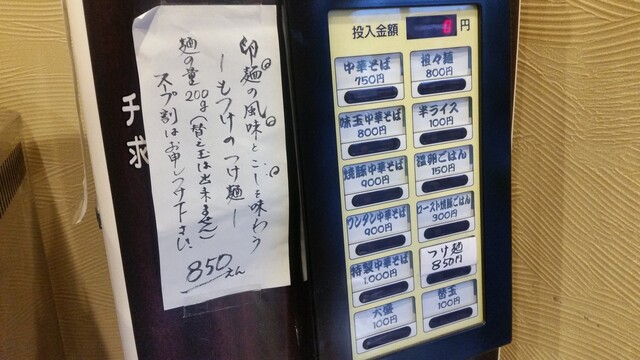 卵麺の風味とこしを味わう
ーもつけのつけ麺ー
麺の量200g(替え玉は出来ません)
スープ割はお申しつけ下さい。
850えん
チ
求
投入金額 0 円
中華そば
750円
担々麺
800円
味玉中華そば
800円
半ライス
100円
焼豚中華そば
900円
温卵ごはん
150円
ワンタン中華そば
900円
ロースト焼豚ごはん
300円
特製中華そば
1,000円
つけ麺
850円
大盛
100円
替玉
100円